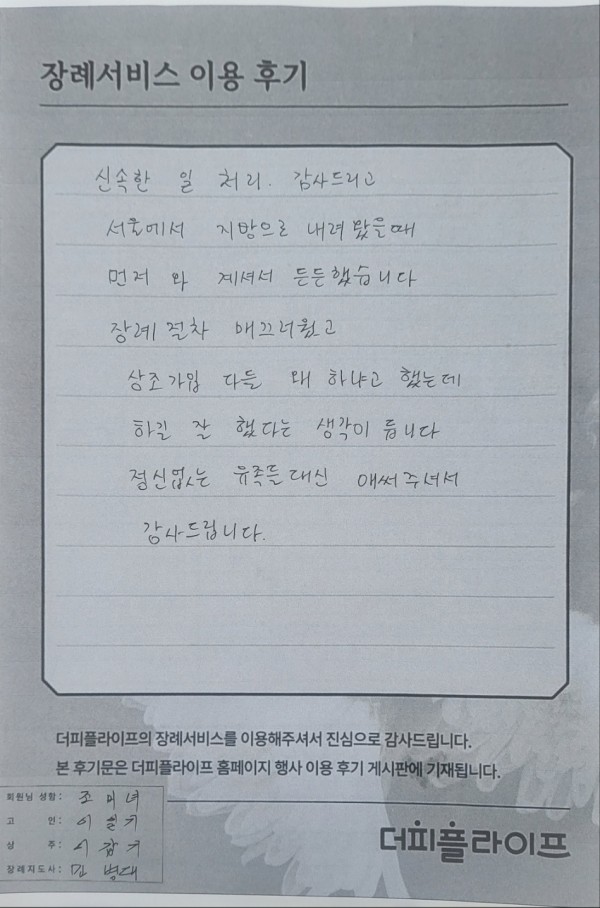 장례서비스 이용 후기
신속한 일 처리. 감사드리고
서울에서 지방으로 내려 왔을때
먼저 와 계셔서 든든했습니다
장례 절차 매끄러웠고
상조가입 다들 왜 하냐고 했는데
하길 잘 했다는 생각이 듭니다
정신없는 유족들 대신 애써주셔서
감사드립니다.
더피플라이프의 장례서비스를 이용해주셔서 진심으로 감사드립니다.
본 후기문은 더피플라이프 홈페이지 행사 이용 후기 게시판에 기재됩니다.
회원님 성함: 조미녀
고 인:
상 주:
장례지도사: 민병대
더피플라이프